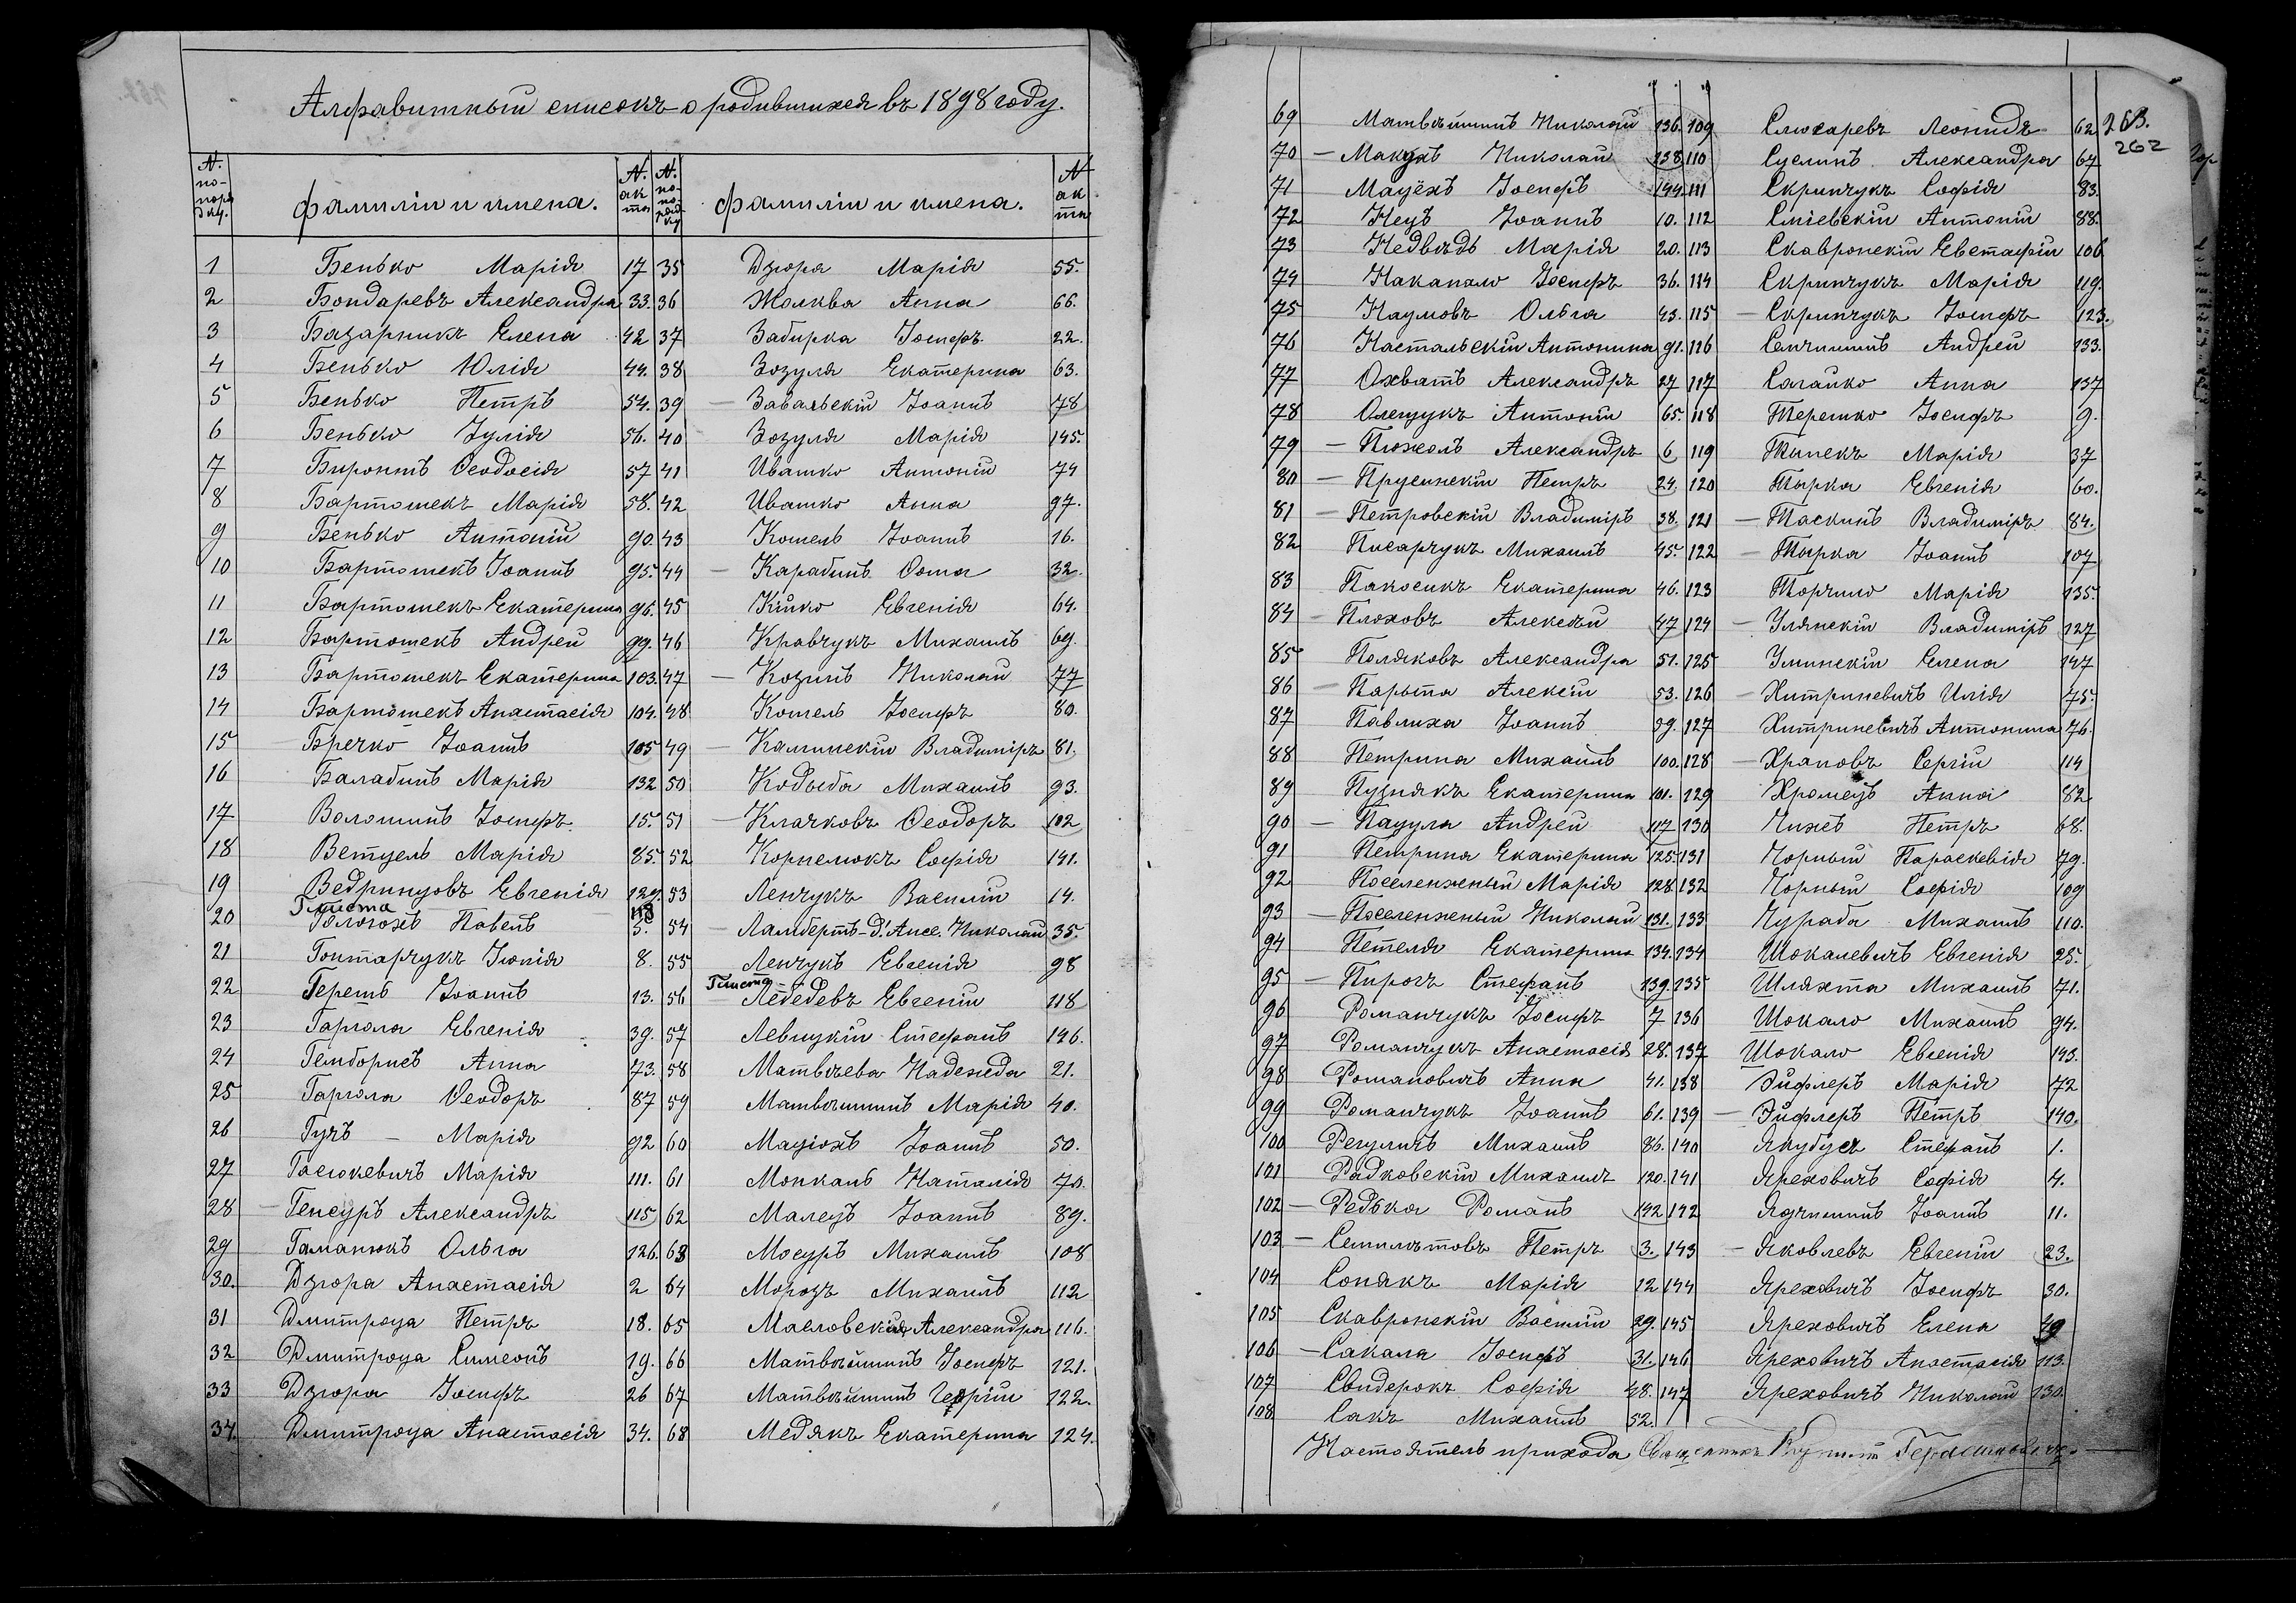 Алфавитный списокъ о родившихся въ 1898 году.
N. по-порядку. Фамиліи и имена. N. акта
1 Бенько Марія 17
2 Бондаревъ Александра 33.
3 Базарникъ Елена 42
4 Бенько Юлія 44.
5 Бенько Петръ 54.
6 Бенько Іулія 56.
7 Биронтъ Ѳеодосія 57
8 Бартошекъ Марія 58.
9 Бенько Антоній 90.
10 Бартошекъ Іоаннъ 95.
11 Бартошекъ Екатерина 96.
12 Бартошекъ Андрей 99.
13 Бартошекъ Екатерина 103.
14 Бартошекъ Анастасія 104.
15 Бречко Іоаннъ 105
16 Балабинъ Марія 132
17 Волошинъ Іосифъ 15.
18 Ветцель Марія 85.
19 Ведринцовъ Евгенія 129.
Глиста 118
20 Павелъ 5.
21 Гонтарчукъ Іюнія 8.
22 Геретъ Іоаннъ 13.
23 Гаргола Евгенія 39.
24 Гемборисъ Анна 73.
25 Гаргола Ѳеодоръ 87
26 Гучъ Марія 92
27 Гасюкевичъ Марія 111.
28 Генсуръ Александръ 115
29 Гаманюкъ Ольга 126.
30. Дзюра Анастасія 2
31 Дмитроца Петръ 18.
32 Дмитроца Симеонъ 19.
33 Дзюра Іосифъ 26
34. Дмитроца Анастасія 34.
N. по-порядку Фамиліи и имена. N акта
35 Дзюра Марія 55.
36 Жолква Анна 66.
37 Забирка Іосифъ 22.
38 Зозуля Екатерина 63.
39 Завальскій Іоаннъ 78
40 Зозуля Марія 145.
41 Ивашко Антоній 74
42 Ивашко Анна 97.
43 Кошель Іоаннъ 16.
44 Карабинъ Ѳома 32.
45 Кійко Евгенія 64.
46 Кравчукъ Михаилъ 69.
47 Козинъ Николай 77
48 Кошель Іосифъ 80.
49 Калинскій Владиміръ 81.
50 Кобыба Михаилъ 93.
51 Клачковъ Ѳеодоръ 102
52 Корнелюкъ Софія 141.
53 Ленчукъ Василій 14.
54 Ламбертъ-д'Анс. Николай 35.
55 Ленчукъ Евгенія 98
Глиста
56 Лебедевъ Евгеній 118
57 Левицкій Стефанъ 146.
58 Матвѣева Надежда 21.
59 Матвѣишинъ Марія 40.
60 Маціохъ Іоаннъ 50.
61 Монкань Наталія 70.
62 Малецъ Іоаннъ 89.
63 Мосуръ Михаилъ 108
64 Морозъ Михаилъ 112
65 Масловскій Александра 116.
66 Матвѣйшинъ Іосифъ 121.
67 Матвѣйшинъ Георгій 122.
68 Медякъ Екатерина 124.
263.
262
69 Матвѣйшинъ Николай 136.
70 Макухъ Николай 138
71 Мацёхъ Іосифъ 144.
72 Нецъ Іоаннъ 10.
73 Недвѣдь Марія 20.
74 Накапало Іосифъ 36.
75 Наумовъ Ольга 43.
76 Настальскій Антонина 91.
77 Охватъ Александръ 27
78 Олещукъ Антоній 65.
79 Плюсколь Александръ 6
80 Прусинскій Петръ 24.
81 Петровскій Владиміръ 38.
82 Писарчукъ Михаилъ 45.
83 Пакосикъ Екатерина 46.
84 Плоховъ Алексѣй 47
85 Поляковъ Александра 51.
86 Парыпа Алексій 53.
87 Павлиха Іоаннъ 59.
88 Петрина Михаилъ 100.
89 Пузнякъ Екатерина 101.
90 Пацула Андрей 117
91 Петрина Екатерина 125.
92 Поселенный Марія 128.
93 Поселенный Николай 131.
94 Петеля Екатерина 134.
95 Пирогъ Стефанъ 139.
96 Романчукъ Іосифъ 7
97 Романчукъ Анастасія 28.
98 Романовичъ Анна 41.
99 Романчукъ Іоаннъ 61.
100 Регуличъ Михаилъ 86.
101 Радковскій Михаилъ 120.
102 Редька Романъ 142
103 Семилѣтовъ Петръ 3.
104 Сонякъ Марія 12
105 Скавронскій Василій 29.
106 Сакала Іосифъ 31.
107 Свидерокъ Софія 48.
108 Сакъ Михаилъ 52.
109 Слюсаревъ Леонидъ 62
110 Суслинъ Александра 67
111 Скринчукъ Софія 83.
112 Сміевскій Антоній 88.
113 Скавронскій Евстафій 106
114 Скринчукъ Марія 119.
115 Скринчукъ Іосифъ 123.
116 Сенчишинъ Андрей 133.
117 Сагайко Анна 137
118 Терешко Іосифъ 9.
119 Тинекъ Марія 37
120 Тырка Евгенія 60.
121 Таскинъ Владиміръ 84.
122 Тырка Іоаннъ 107
123 Торчило Марія 135.
124 Улянскій Владиміръ 127
125 Улинскій Елена 147
126 Хитриневичъ Илія 75.
127 Хитриневичъ Антонина 76.
128 Храповъ Сергій 114
129 Хромецъ Анна 82
130 Чижъ Петръ 68.
131 Чорный Параскевія 79.
132 Чорный Софія 109
133 Чурада Михаилъ 110.
134 Шокалевичъ Евгенія 25.
135 Шляхта Михаилъ 71.
136 Шокало Михаилъ 94.
137 Шокало Евгенія 143.
138 Эйфлеръ Марія 72
139 Эйфлеръ Петръ 140.
140 Якубусъ Стефанъ 1.
141 Яреховичъ Софія 4.
142 Ядчишинъ Іоаннъ 11.
143 Яковлевъ Евгеній 23.
144 Яреховичъ Іосифъ 30.
145 Яреховичъ Елена 49
146 Яреховичъ Анастасія 113.
147 Яреховичъ Николай 130.
Настоятель прихода Священникъ Герасимовичъ